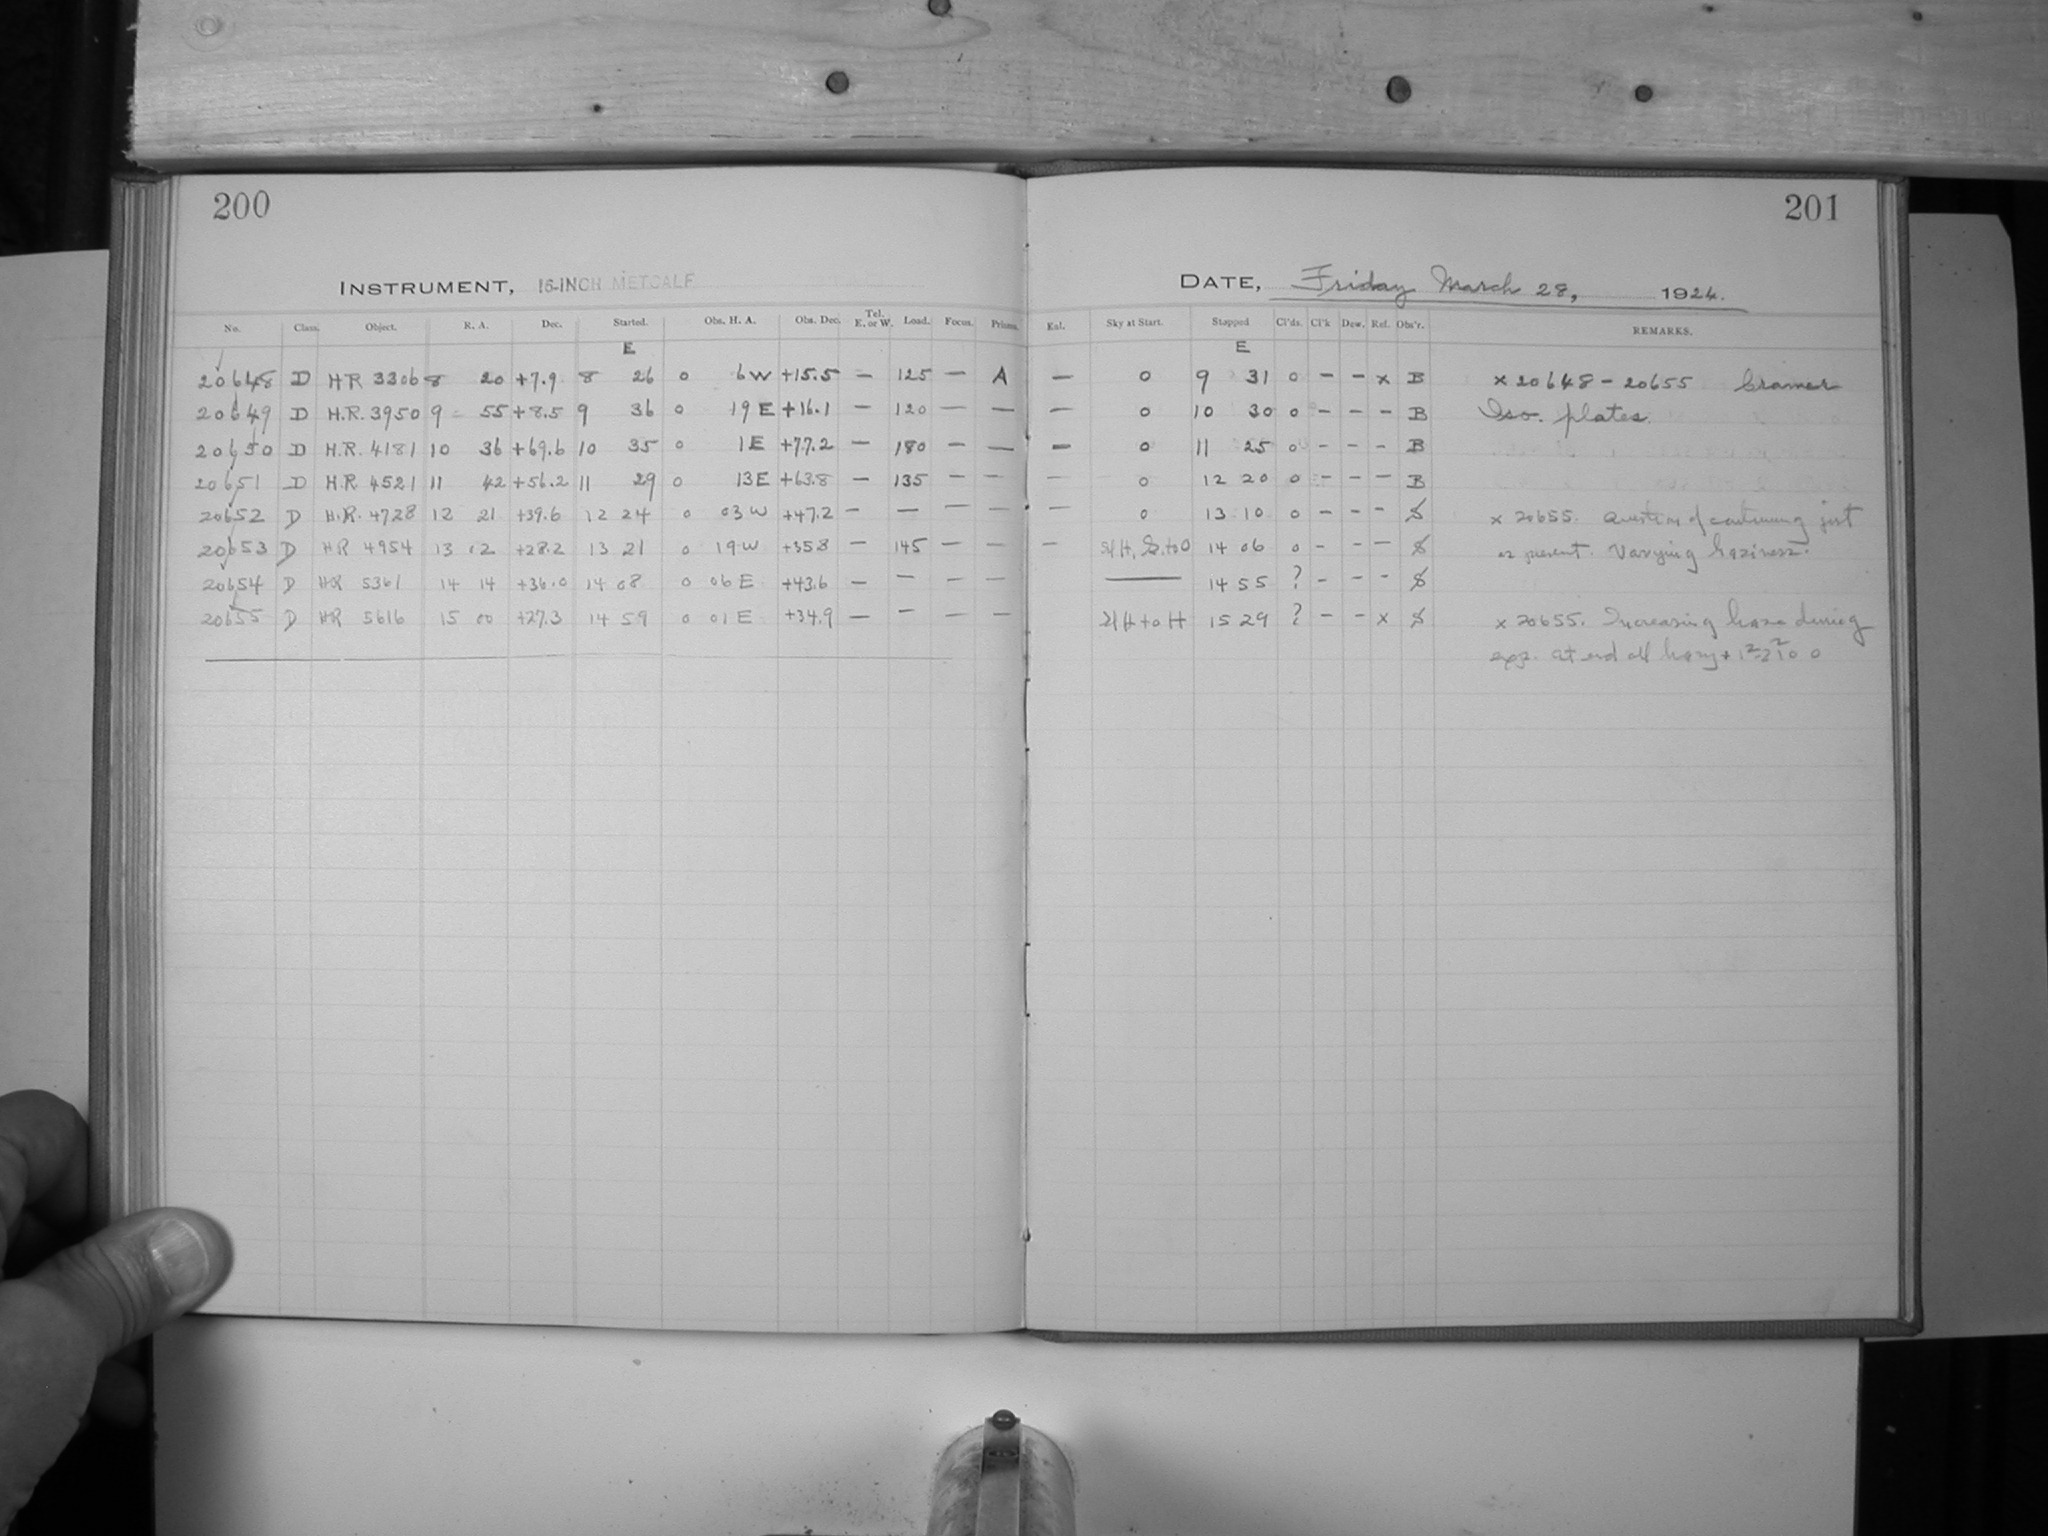 200
INSTRUMENT, 16-INCH METCALF
No. Class. Object. R. A. Dec. Started. Obs. H. A. Obs. Dec. Tel. E. or W. Load. Focus. Prisms.
E
20648 D HR 3306 8 20 +7.9 8 26 0 6 W +15.5 — 125 — A
20649 D H.R. 3950 9 55 +8.5 9 36 0 19 E +16.1 — 120 — —
20650 D H.R. 4181 10 36 +69.6 10 35 0 1 E +77.2 — 180 — —
20651 D H.R 4521 11 42 +56.2 11 29 0 13 E +63.8 — 135 — —
20652 D H.R. 4728 12 21 +39.6 12 24 0 03 W +47.2 — — — —
20653 D HR 4954 13 02 +28.2 13 21 0 19 W +35.8 — 145 — —
20654 D HR 5361 14 14 +36.0 14 08 0 06 E +43.6 — — — —
20655 D HR 5616 15 00 +27.3 14 59 0 01 E +34.9 — — — —
201
DATE, Friday March 28, 1924.
Ext. Sky at Start. Stopped Cl'ds. Cl'k Dew. Rel. Obs'r. REMARKS.
E
— 0 9 31 0 – – x B x 20648 – 20655 Cramer
— 0 10 30 0 – – – B Iso. plates.
— 0 11 25 0 – – – B
— 0 12 20 0 – – – B
— 0 13 10 0 – – – x 20655. Question of continuing just
— to 0 14 06 0 – – – at present. Varying haziness.
— 14 55 ? – – –
to H 15 29 ? – – x x 20655. Increasing haze during
exp. At end all hazy